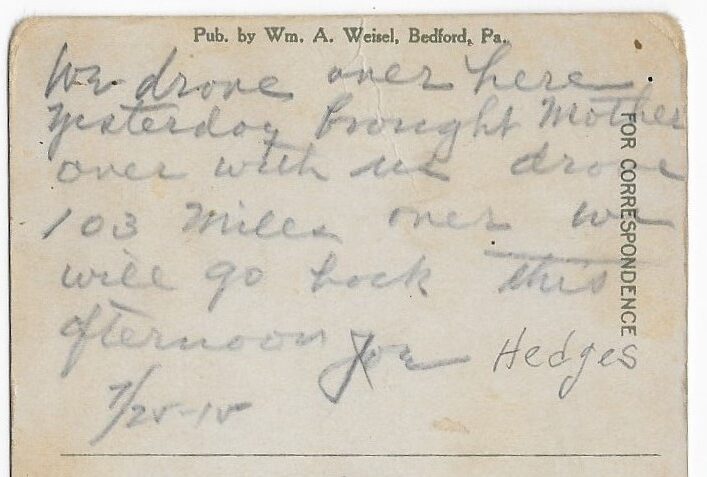 Pub. by Wm. A. Weisel, Bedford, Pa.
We drove over here
yesterday brought Mother
over with us drove
103 Miles over we
will go back this
afternoon Joe Hedges
7/25-15
FOR CORRESPONDENCE